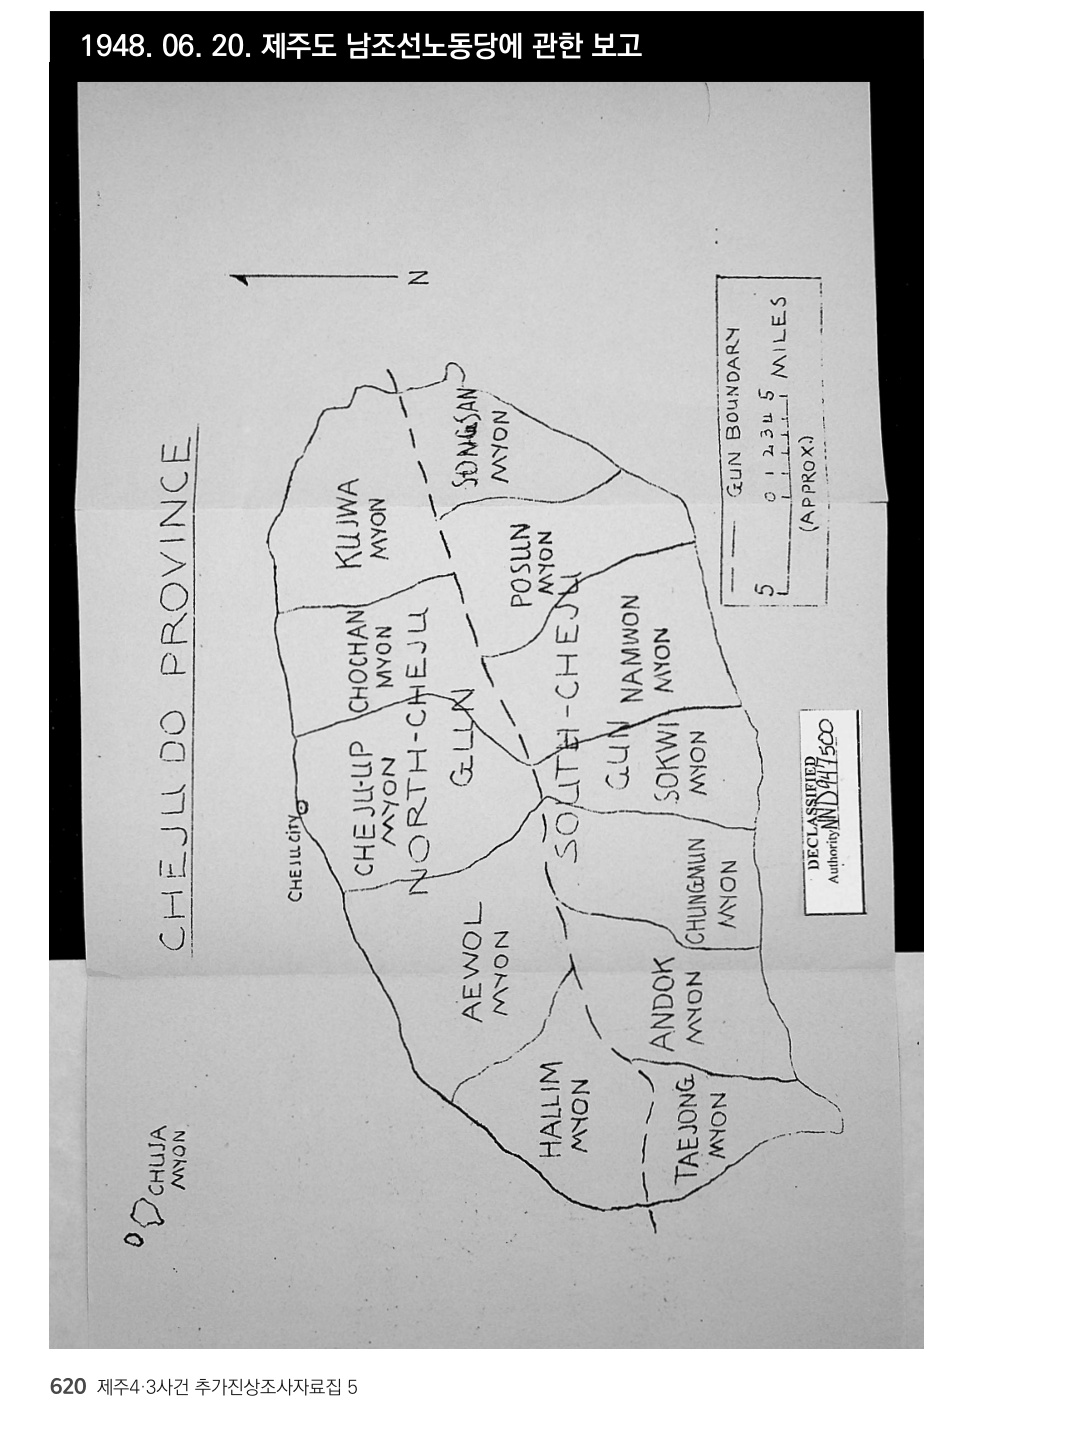 1948. 06. 20. 제주도 남조선노동당에 관한 보고
CHEJU DO PROVINCE
N
CHUJA
MYON
CHEJU CITY
KUJWA
MYON
CHOCHAN
MYON
CHEJU-UP
MYON
NORTH-CHEJU
GUN
AEWOL
MYON
HALLIM
MYON
SONGSAN
MYON
POSUN
MYON
SOUTH-CHEJU
GUN
NAMWON
MYON
SOKWI
MYON
CHUNGMUN
MYON
ANDOK
MYON
TAEJONG
MYON
GUN BOUNDARY
5 0 1 2 3 4 5 MILES
(APPROX.)
DECLASSIFIED
Authority NND947500
620 제주4·3사건 추가진상조사자료집 5